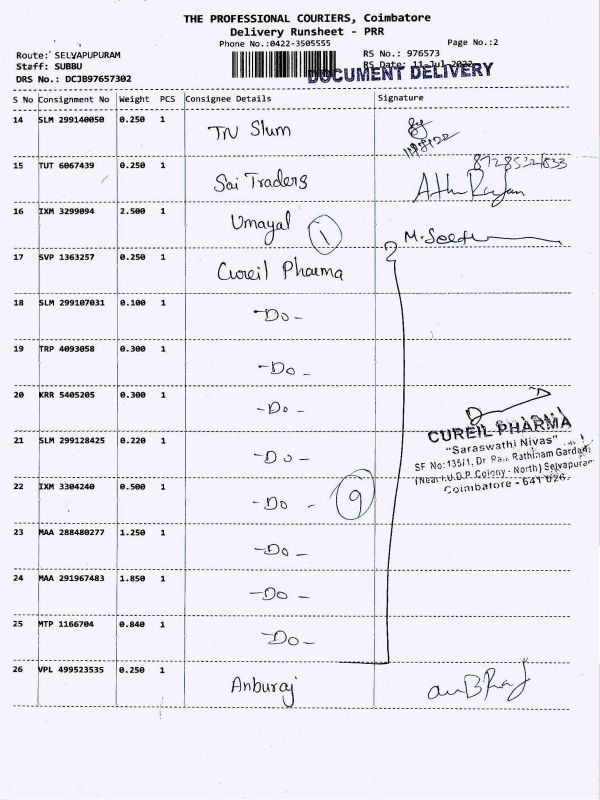 THE PROFESSIONAL COURIERS, Coimbatore
Delivery Runsheet - PRR
Phone No.:0422-3505555
Page No.:2
Route: SELVAPUPURAM
RS No.: 976573
Staff: SUBBU
RS Date: 11-Jul-2022
DOCUMENT DELIVERY
DRS No.: DCJB97657302
S No Consignment No Weight PCS Consignee Details Signature
14 SLM 299140050 0.250 1 TN Slum
15 TUT 6067439 0.250 1 Sai Traders
16 IXM 3299094 2.500 1 Umayal 1
17 SVP 1363257 0.250 1 Cureil Pharma
18 SLM 299107031 0.100 1 -Do-
19 TRP 4093058 0.300 1 -Do-
20 KRR 5405205 0.300 1 -Do-
21 SLM 299128425 0.220 1 -Do-
22 IXM 3304240 0.500 1 -Do- 9
23 MAA 288480277 1.250 1 -Do-
24 MAA 291967483 1.850 1 -Do-
25 MTP 1166704 0.840 1 -Do-
26 VPL 499523535 0.250 1 Anburaj anBRaj
CUREIL PHARMA
"Saraswathi Nivas"
SF No:135/1, Dr Raja Rathinam Garden,
(Near H.U.D.P. Colony - North) Selvapuram
Coimbatore - 641 026.